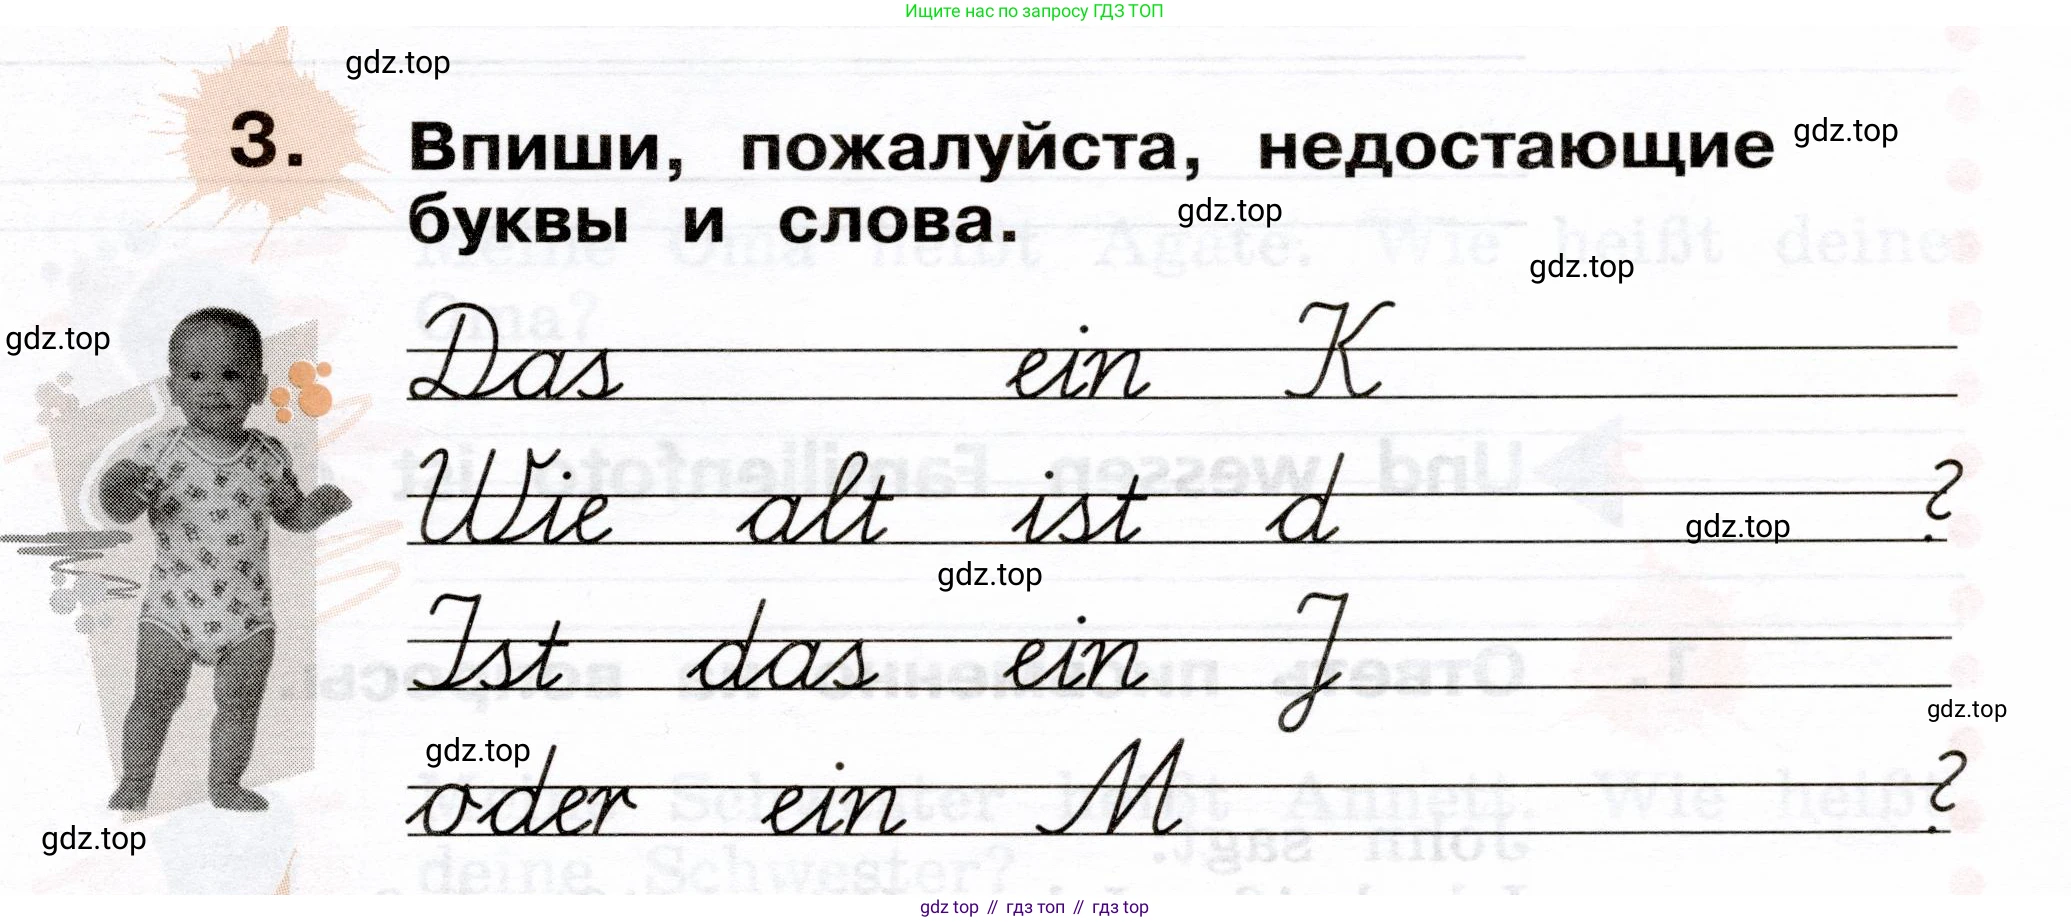 Ищите нас по запросу ГДЗ ТОП
gdz.top
3. Впиши, пожалуйста, недостающие
gdz.top
буквы и слова.
gdz.top
gdz.top
gdz.top
Das ein K
Wie alt ist d ?
gdz.top
gdz.top
Ist das ein J
gdz.top
gdz.top
oder ein M ?
gdz.top
gdz top // гдз топ // гдз top